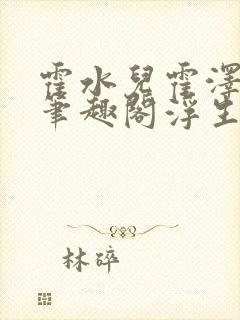 霍水兒霍澤
筆趣閣浮生
林碎